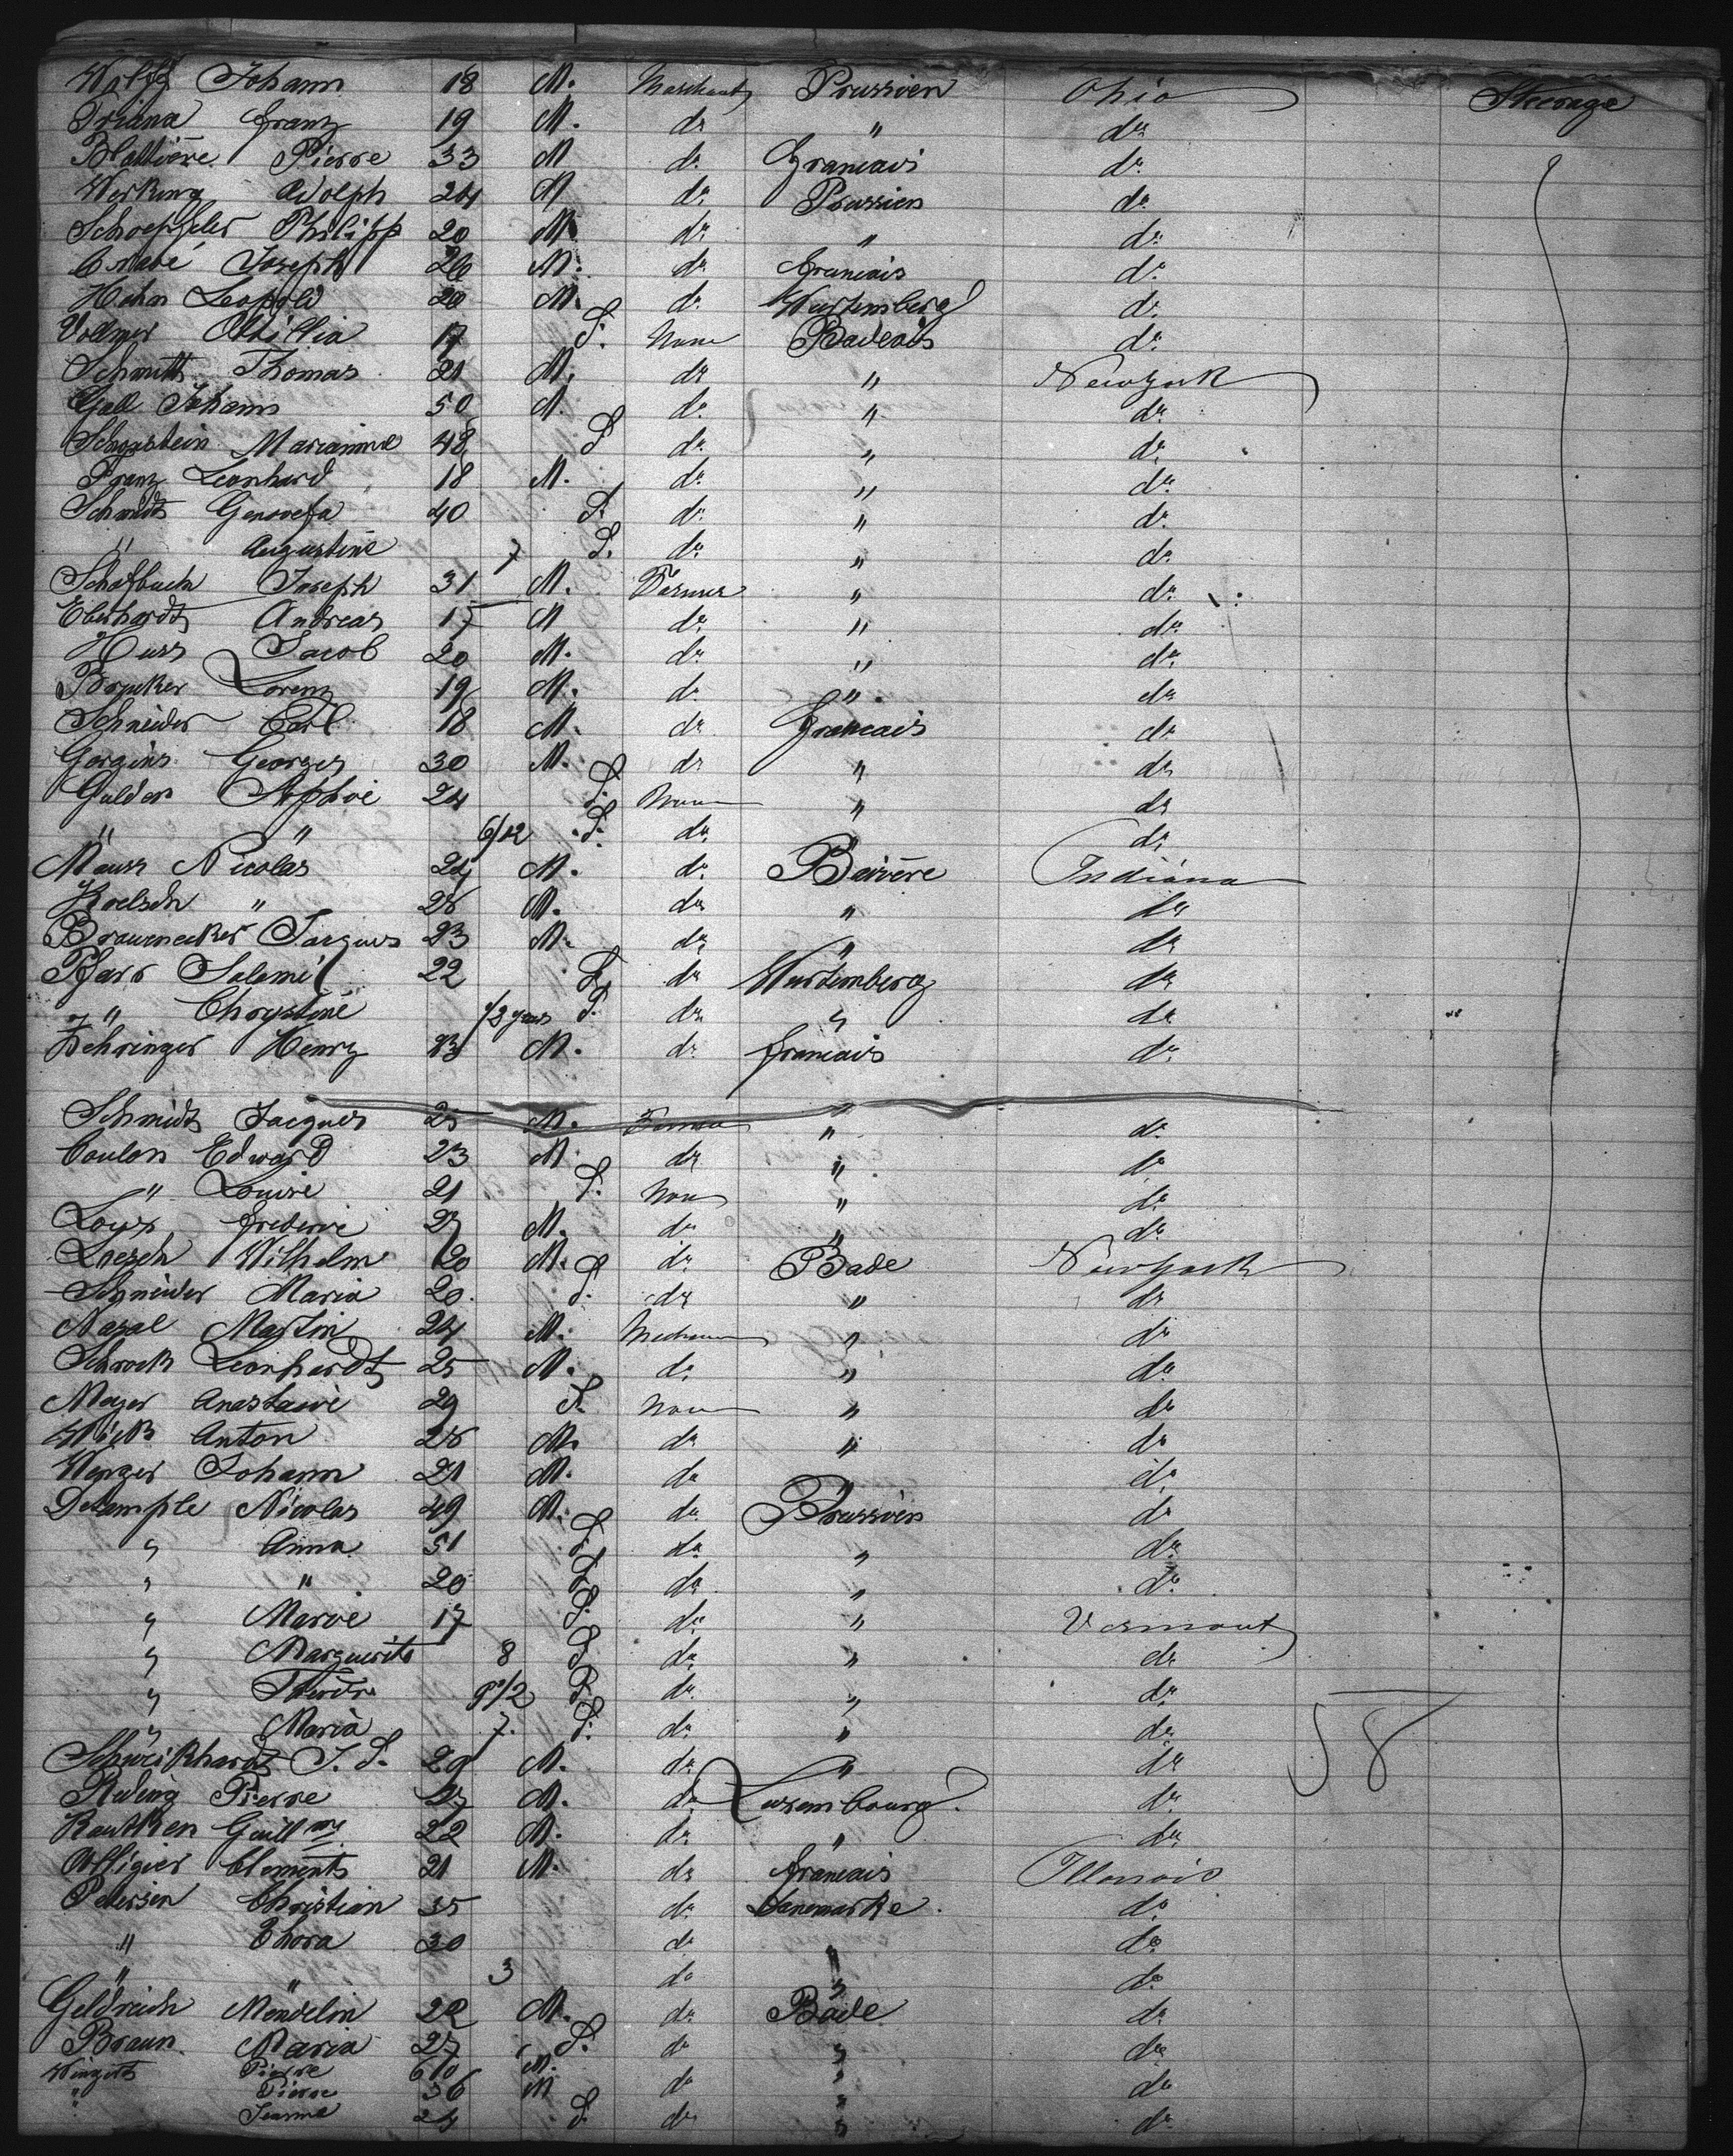 Wolff Johann 18 M. Merchant Prussien Ohio Steerage
Triana Franz 19 M. do " do
Blottière Pierre 33 M do Francais do
Werking Adolph 24 M do Prussien do
Philipp 20 M do " do
Joseph 26 M. do francais do
Hohn Leopold 20 M. do Wurtemberg do
Vollmer Ottillia 17 F. None Badenois do
Schmitt Thomas 21 M. do " New York
Gall Johann 50 M. do " do
Marianne 48 F do " do
Franz Leonhard 18 M. do " do
Schmidt Genovefa 40 F. do " do
" Augustine 7 F. do " do
Schafbuch Joseph 31 M. Farmer " do
Eberhardt Andreas 17 M do " do
Huss Jacob 20 M. do " do
Brucker Lorenz 19 M. do " do
Schneider Carl 18 M. do Francais do
Georges 30 M. do " do
Gulden Sophie 24 F. None " do
" " 6/12 F. do " do
Maus Nicolas 24 M. do Bavière Indiana
Koelsch " 28 M. do " do
Braunecker Jacques 23 M. do " do
Pfarr Salomé 22 F. do Wurtemberg do
" Chrystine 1/2 year F. do " do
Henry 23 M. do francais do
Schmidt Jacques 25 M. Farmer " do
Coulon Edward 23 M. do " do
" Louise 21 F. None " do
Frederic 27 M. do " do
Loesch Wilhelm 20 M. do Bade New York
Schneider Maria 20. F. do " do
Nazal Martin 24 M. " do
Schrock Leonhardt 25 M. do " do
Mayer Anastasie 29 F. None " do
Wick Anton 28 M. do " do
Wenger Johann 21 M. do " do
Delample Nicolas 49 M. do Prussien do
" Anna 51 F. do " do
" " 20 F. do " do
" Marie 17 F. do " Vermont
" Marguerite 8 F. do " do
" 9 1/2 F. do " do
" Maria 7. F. do " do
Schweikhardt J. F. 29 M. do " do
Reding Pierre 27 M. do Luxembourg. do
Guillme 22 M. do " do 58
Clements 21 M. do francais Illonois
Petersen Christian 35 do Danemarke. do
" Thora 30 do " do
" " 3 do " do
Geldreich Mendelin 22 M. do Bade do
Braun Maria 27 F. do " do
Pierre M.
" Pierre 36 M do " do
" Jeanne 24 F. do " do